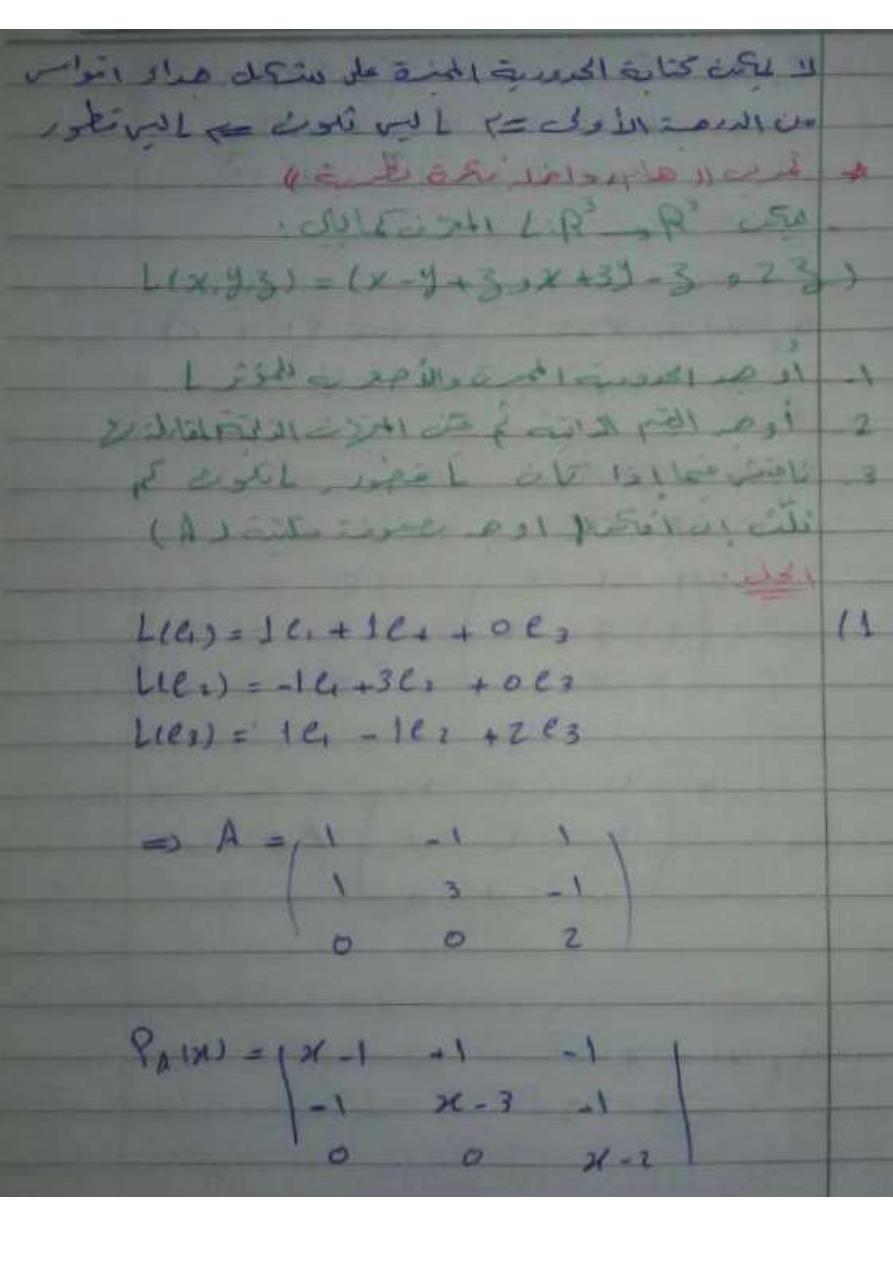 لا يمكن كتابة الحدودية المميزة على شكل جداء اقواس
من الدرجة الأولى => L ليس ثلوث => L ليس قطور
* تمرين (( هام وداخل بفكرة نظرية ))
- ليكن L: R³ → R³ المعرف كما يلي:
L(x,y,z) = (x-y+z, x+3y-z, 2z)
1- أوجد الحدودية المميزة والأصغرية للمؤثر L
2- أوجد القيم الذاتية ثم عين المتجهات الذاتية المقابلة
3- ناقش فيما إذا كان L قطور، L ثلوث ثم
ثلّث إن أمكن (اوجد مصفوفة مثلثية لـ A)
الحل:
1) L(e₁) = 1e₁ + 1e₂ + 0e₃
L(e₂) = -1e₁ + 3e₂ + 0e₃
L(e₃) = 1e₁ - 1e₂ + 2e₃
=> A = ( 1 -1 1
1 3 -1
0 0 2 )
P_A(x) = | x-1 +1 -1
-1 x-3 +1
0 0 x-2 |